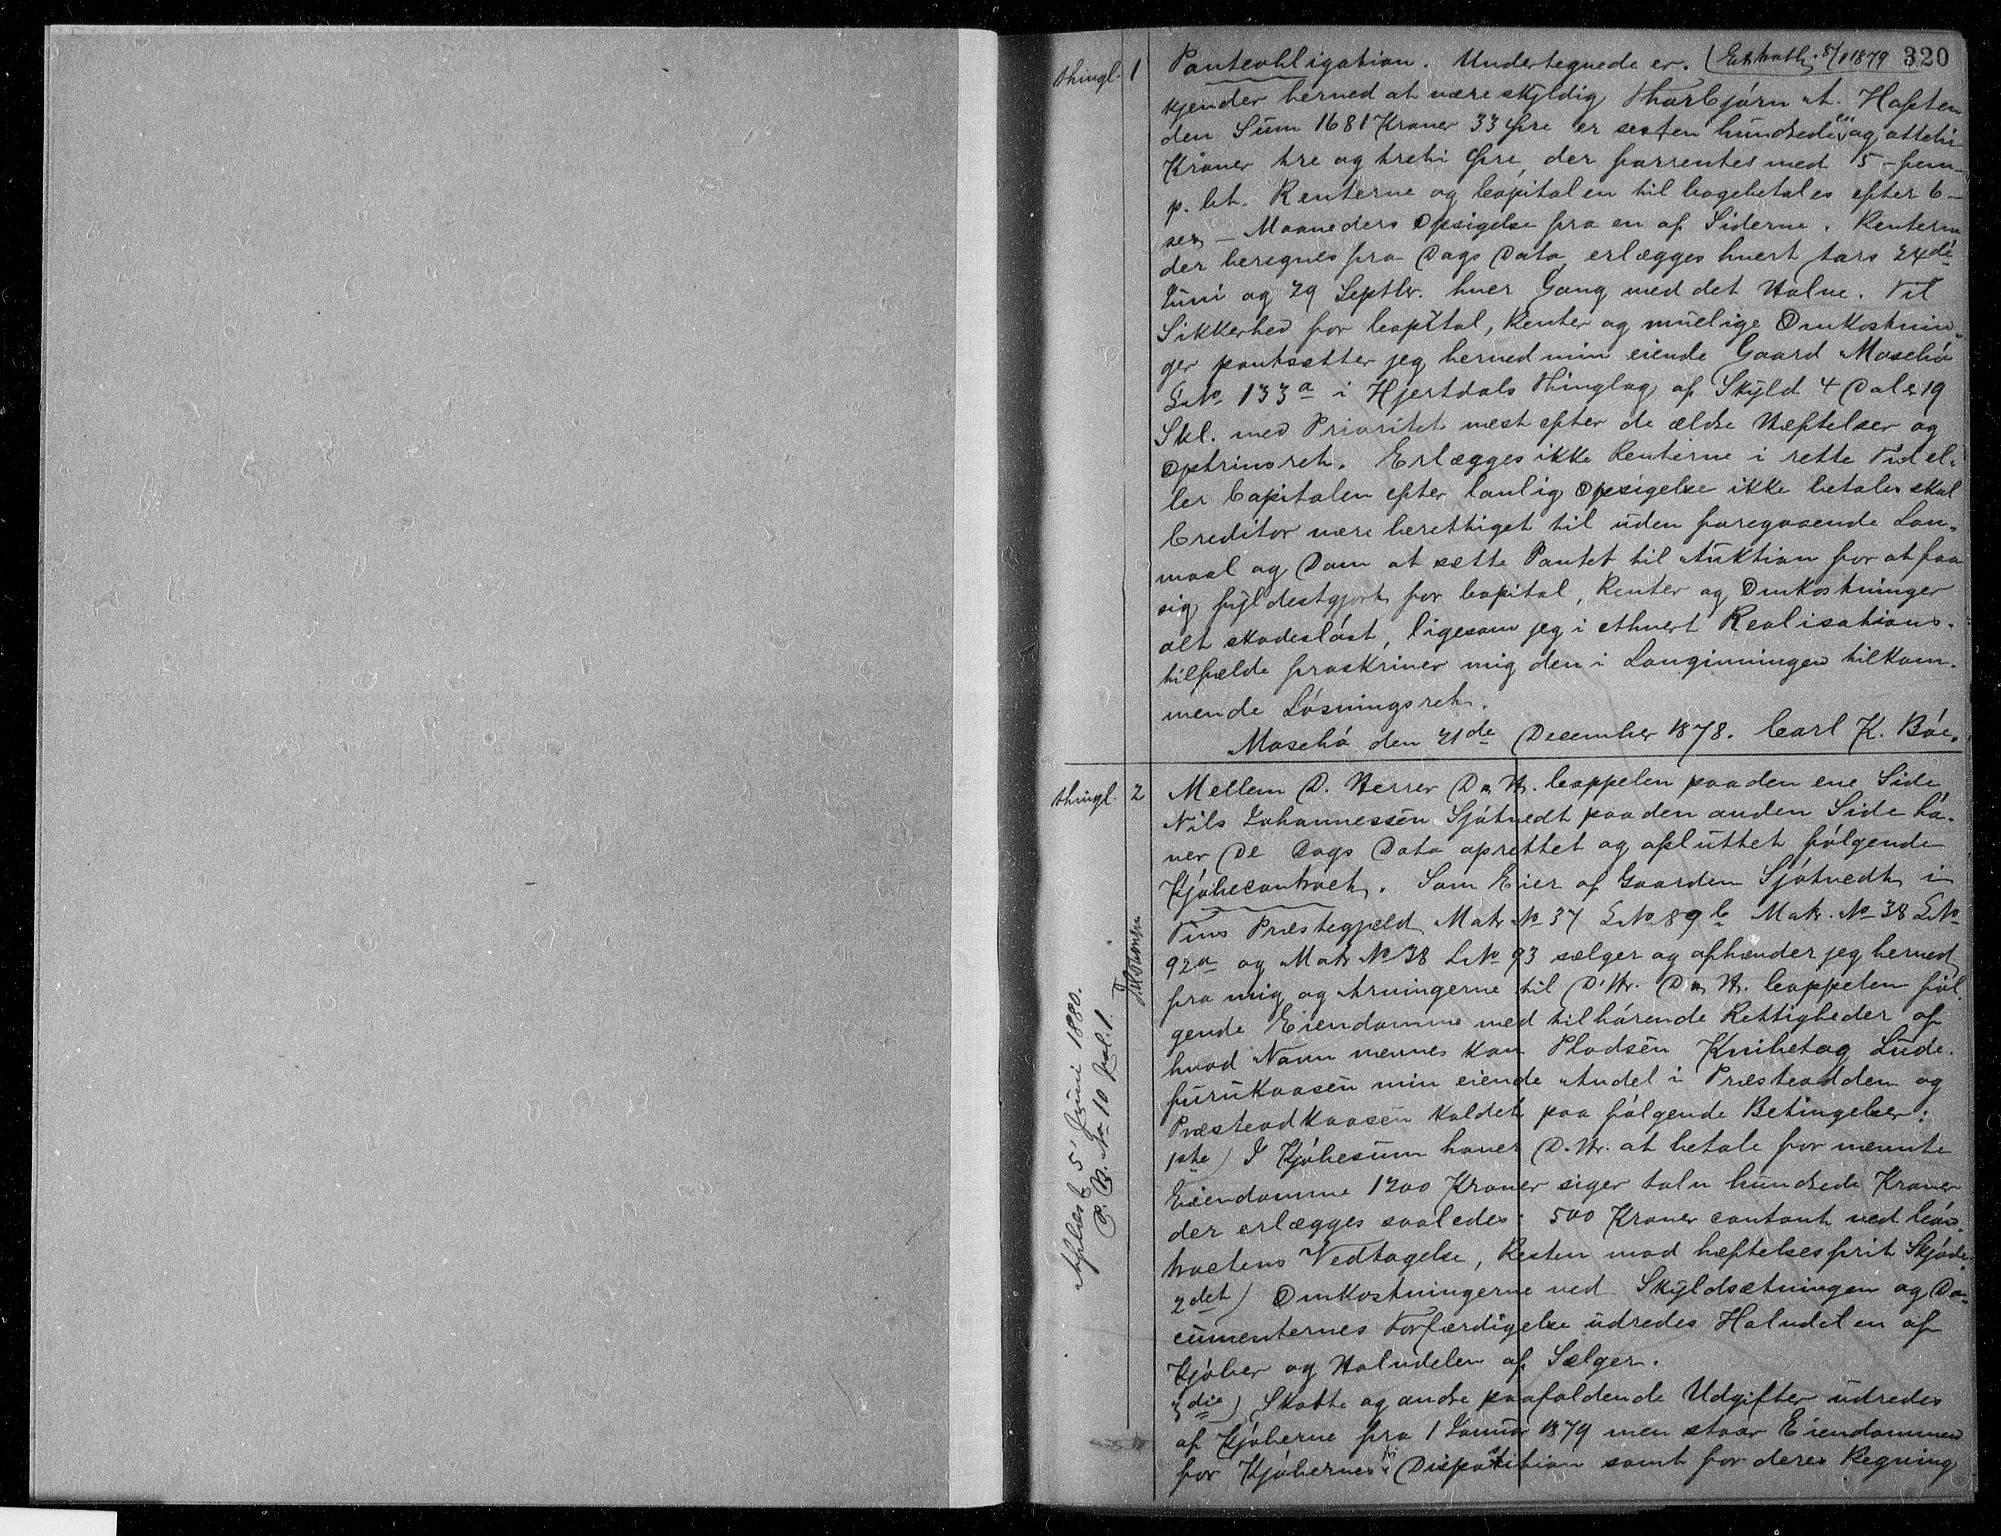 320
thingl. 1 Panteobligation. Undertegnede er. (Extrath. 8/1 1879
kjender herved at være skyldig Thorbjørn A. Haften
den Sum 1681 Kroner 33 Øre er sexten hundrede en og otteti
Kroner tre og treti Øre, der forrentes med 5 - fem -
p. Ct. Renterne og Capitalen tilbagebetales efter 6 -
sex - Maaneders Opsigelse fra en af Siderne. Renterne
der beregnes fra Dags Dato, erlægges hvert Aars 24de
Juni og 29 Septbr. hver Gang med det Halve. Til
Sikkerhed for Capital, Renter og muelige Omkostnin-
ger pantsetter jeg herved min eiende Gaard Mosebø
LNo 133a i Hjertdals Thinglag af Skyld 4 Daler 19
Skl. med Prioritet næst efter de ældre Hæftelser og
Optrinsret. Erlægges ikke Renterne i rette Tid el-
ler Capitalen efter lovlig Opsigelse ikke betales skal
Creditor være berettiget til uden foregaaende Lov-
maal og Dom at sætte Pantet til Auktion for at faa
sig fyldestgjort for Capital, Renter og Omkostninger
alt skadesløst, ligesom jeg i ethvert Realisations-
tilfælde fraskriver mig den i Lovgivningen tilkom-
mende Løsningsret.
Mosebø den 21de December 1878. Carl K. Bøe.
thingl. 2 Mellem D. Herrer D. & H. Cappelen paa den ene Side
Nils Johannessen Sjøtvedt paa den anden Side ha-
ver De Dags Dato oprettet og afsluttet følgende
Kjøbecontract. Som Eier af Gaarden Sjøtvedt i
Tins Præstegjeld Matr No 37 LNo 89b Matr. No 38 LNo
92a og Matr No 38 LNo 93 sælger og afhænder jeg herved
fra mig og Arvingerne til D'Hr. D. & H. Cappelen føl-
gende Eiendomme med tilhørende Rettigheder af
hvad Navn nevnes kan Pladsen Knibetog Lude-
furukaasen min eiende Andel i Præsteodden og
Præsteodkaasen kaldet paa følgende Betingelser:
1ste) I Kjøbesum haver D. Hr. at betale for nævnte
Eiendomme 1200 Kroner siger tolv hundrede Kroner
der erlægges saaledes: 500 Kroner contant ved Con-
tractens Vedtagelse, Resten mod hæftelsesfrit Skjøde.
2det) Omkostningerne ved Skyldsætningen og Do-
cumenternes Forfærdigelse udredes Halvdelen af
Kjøber og Halvdelen af Sælger.
3die) Skatte og andre paafaldende Udgifter udredes
af Kjøberne fra 1 Januar 1879 men staar Eiendommen
for Kjøbernes fri Disposition samt for deres Regning
Aflæst 5 Juni 1880.
P. B. No 10 fol. 1.